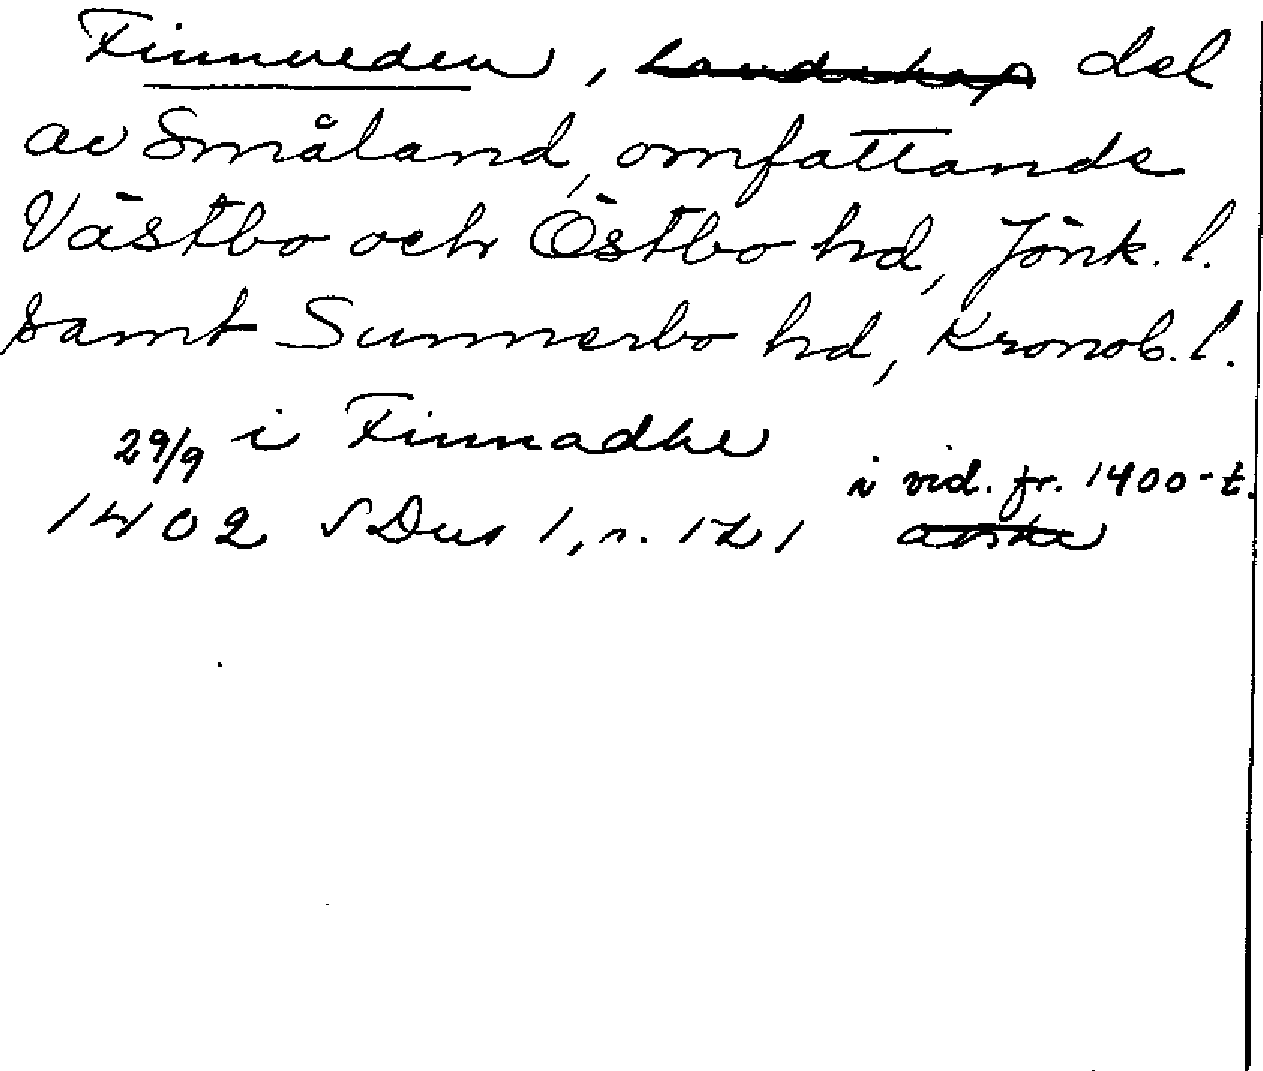 Finnveden, landskap del
av Småland, omfattande
Västbo och Östbo hd, Jönk. l.
samt Sunnerbo hd, Kronob. l.
29/9 i Finnadhe
1402 SDns 1, s. 121 i vid. fr. 1400-t.